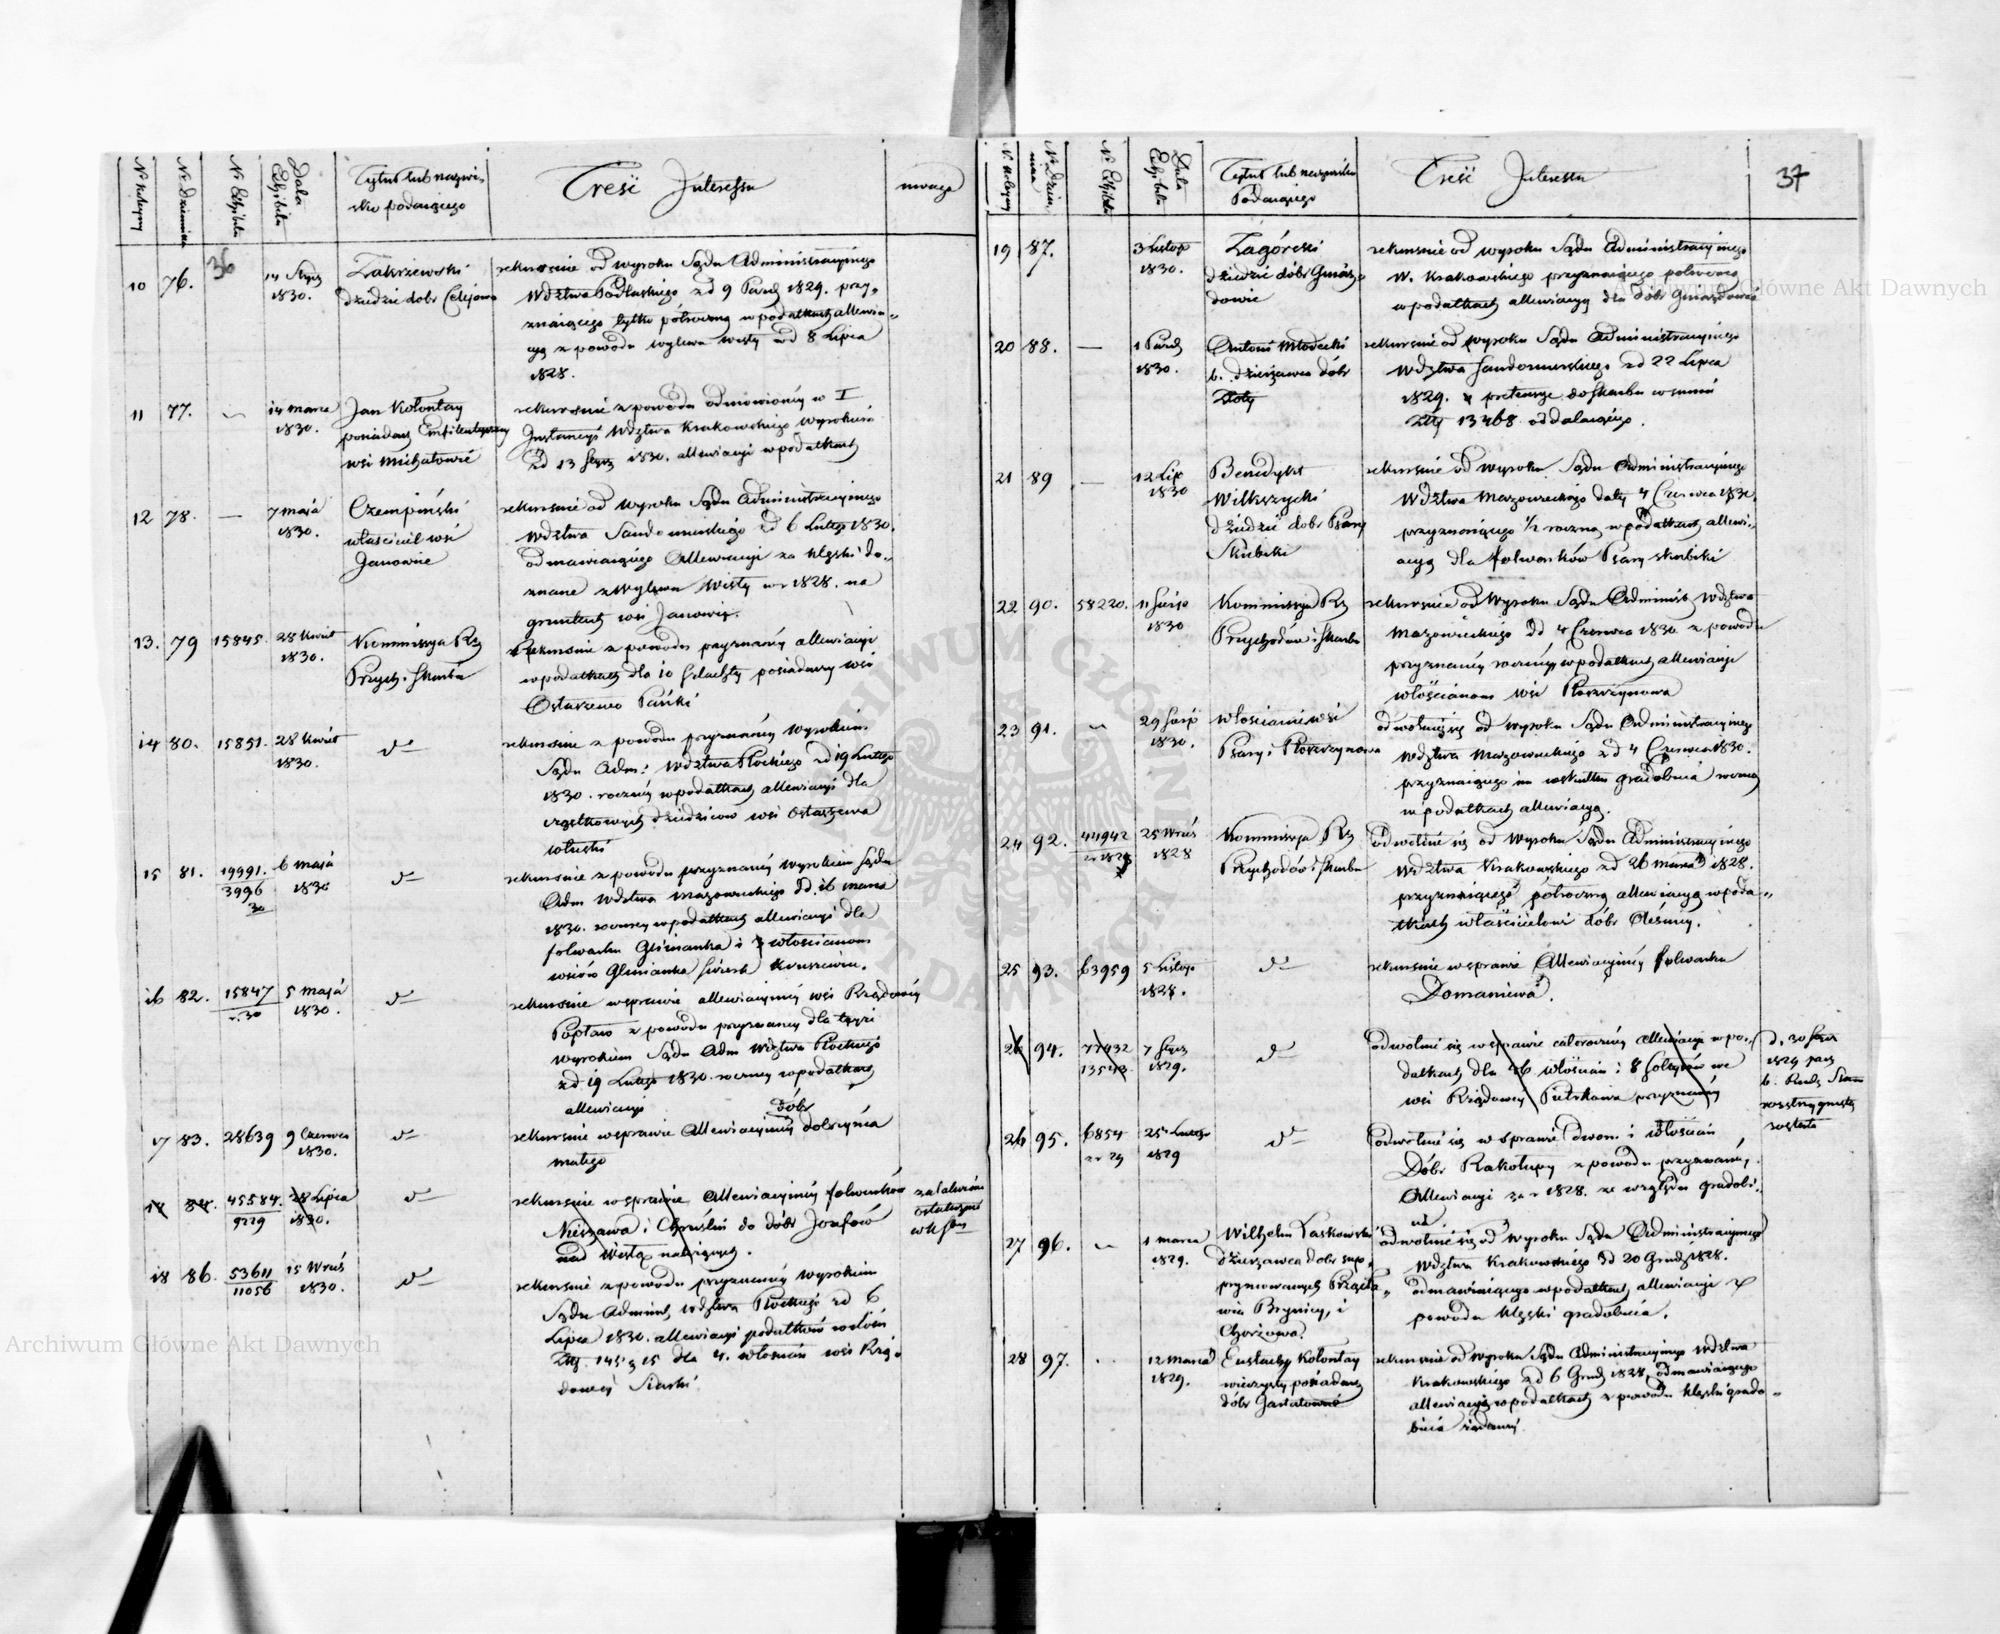 Nr kolejny
Nr Dziennika
Nr Exhibitu
Data Exhibitu
Tytuł lub nazwi-
sko podaiącego
Treść Interessu
uwaga
36
10 76. 14 Stycz 1830. Zakrzewski
dziedzic dobr Celejowa
rekursuie od wyroku Sądu Administracyinego
Wdztwa Podlaskiego zd 9 Pazd 1829. przy„
znaiącego tylko półroczną w podatkach allewia„
cyą z powodu wylewu Wisły nd 8 Lipca
1828.
11 77. — 14 marca 1830. Jan Kołontay
posiadacz Emfiteutyczny
wsi Michałowic
rekursuie z powodu odmówioney w I
Instancyi Wdztwa Krakowskiego wyrokiem
zd 13 Stycz 1830. allewiacyi w podatkach
12 78. — 7 maja 1830. Czempiński
właściciel wsi
Janowic
rekursuie od wyroku Sądu Administracyinego
Wdztwa Sandomirskiego zd 6 Lutego 1830.
odmawiaiącego Allewiacyi za klęski do„
znane z wylewu Wisły w r 1828. na
gruntach wsi Janowic.
13. 79 15845. 28 Kwiet 1830. Kommissya Rz
Przych. i Skarbu
rekursuie z powodu przyznaney allewiacyi
w podatkach dla 10 szlachty posiadaczy wsi
Ostaszewo Pańki
14 80. 15851. 28 Kwiet 1830. d°
rekursuie z powodu przyznaney wyrokiem
Sądu Adm: Wdztwa Płockiego zd 19 Lutego
1830. roczney w podatkach allewiacyi dla
cząstkowych dziedziców wsi Ostaszewa
włuski
15 81. 19991. 6 maja 1830 d°
3996
30
rekursuie z powodu przyznaney wyrokiem Sądu
Adm Wdztwa Mazowieckiego zd 16 marca
1830. roczney w podatkach allewiacyi dla
folwarku Glinianka i włościanom
wsiów Glinianka Kruszewiec.
16 82. 15847 5 Maja 1830. d°
r. 30
rekursuie w sprawie allewiacyiney wsi Rządowey
Popławo z powodu przyznaney dla teyże
wyrokiem Sądu Adm Wdztwa Płockiego
zd 19 Lutego 1830. roczney w podatkach
allewiacyi
17 83. 28639 9 Czerwca 1830. d°
rekursuie w sprawie Allewiacyiney dóbr dobrzynia
małego
17 84. 45584. 28 Lipca 1830. d°
9229
rekursuie w sprawie Allewiacyiney folwarków
Nieszawa i Chruślin do dóbr Jozefów
nad Wisłą należących.
załatwiono
ostatecznie
18 86. 53611 15 Wrześ 1830. d°
11056
rekursuie z powodu przyznaney wyrokiem
Sądu Adminis. Wdztwa Płockiego zd 6
Lipca 1830. allewiacyi podatków w ilości
Złtp. 145 g 15 dla 4. włościan wsi Rzą„
dowey Siarki
Nr kolejny
Nr Dzien
nika
Nr Exhibitu
Data Exhibitu
Tytuł lub nazwisko
Podaiącego
Treść Interessu
37
19 87. 3 Listop 1830. Zagórski
dziedzic dóbr Gniaz„
dowic
rekursuie od wyroku Sądu Administracyinego
W. Krakowskiego przyznaiącego półroczną
w podatkach allewiacyą dla dóbr Gniazdowic
20 88. — 1 Pazdz 1830. Antoni Młodecki
b. dzierżawca dóbr
Złoty
rekursuie od wyroku Sądu Administracyinego
Wdztwa Sandomirskiego zd 22 Lipca
1829. pretensye do Skarbu w summie
Złtp 13468 oddalaiącego.
21 89 — 12 Lip 1830 Benedykt
Wilkszycki
dziedzic dobr Psary
Skubiki
rekursuie od wyroku Sądu Administracyinego
Wdztwa Mazowieckiego daty 4 Czerwca 1830,
przyznaiącego 1/2 roczną w podatkach allewi„
acyą dla folwarków Psary Skubiki
22 90. 58220. 11 Sierp 1830 Kommissya Rz
Przychodów i Skarbu
rekursuie od wyroku Sądu Administ Wdztwa
Mazowieckiego zd 4 Czerwca 1830 z powodu
przyznaney roczney w podatkach allewiacyi
włościanom wsi Płoszczynowa
23 91. — 29 Sierp 1830. Włościanie wsi
Psary i Płoszczynowa
odwołuią się od wyroku Sądu Administracyinego
Wdztwa Mazowieckiego zd 4 Czerwca 1830.
przyznaiącego im w skutku gradobicia roczną
w podatkach allewiacyą.
24 92. 44942 25 Wrześ 1828 Kommissya Rz
w 1828
Przychodów i Skarbu
odwołuie się od wyroku Sądu Administracyinego
Wdztwa Krakowskiego zd 26 Marca 1828.
przyznaiącego półroczną allewiacyą w poda„
tkach właścicielowi dóbr Oleśnicy.
25 93. 63959 5 Listop 1828. d°
rekursuie w sprawie Allewiacyiney folwarku
Domaniewa.
26 94. 77432 7 Stycz 1829. d°
13543
odwołuie się w sprawie całoroczney Allewiacyi w po„
datkach dla 46 włościan i 8 sołtysów we
wsi Rządowey Piotrkowa przyznaney
d. 30
1829
26 95. 6854 25 Lutego 1829 d°
r 29
odwołuie się w sprawie Dwom. i Włościan
Dóbr Rakołupy z powodu przyznaney
Allewiacyi za r 1828. ze względu gradobi„
cia
27 96. — 1 marca 1829. Wilhelm Laskowski
dzierżawca dobr sup„
prymowanych
Brynicy, i
Chorzowa.
odwołuie się od wyroku Sądu Administracyinego
Wdztwa Krakowskiego zd 20 Grud 1828.
odmawiaiącego w podatkach allewiacyi z
powodu klęski gradobicia.
28 97. .. 12 marca 1829. Eustachy Kołontay
wieczysty posiadacz
dóbr
rekursuie od wyroku Sądu Administracyinego Wdztwa
Krakowskiego zd 6 Grud 1828, odmawiaiącego
allewiacyi w podatkach z powodu klęski grado„
bicia żądaney.
Archiwum Główne Akt Dawnych
Archiwum Główne Akt Dawnych
ARCHIWUM GŁÓWNE AKT DAWNYCH